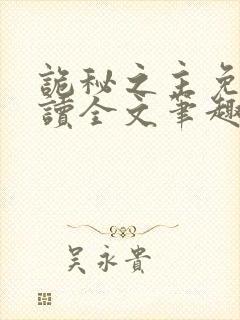 詭秘之主免
讀全文筆趣
吳永貴